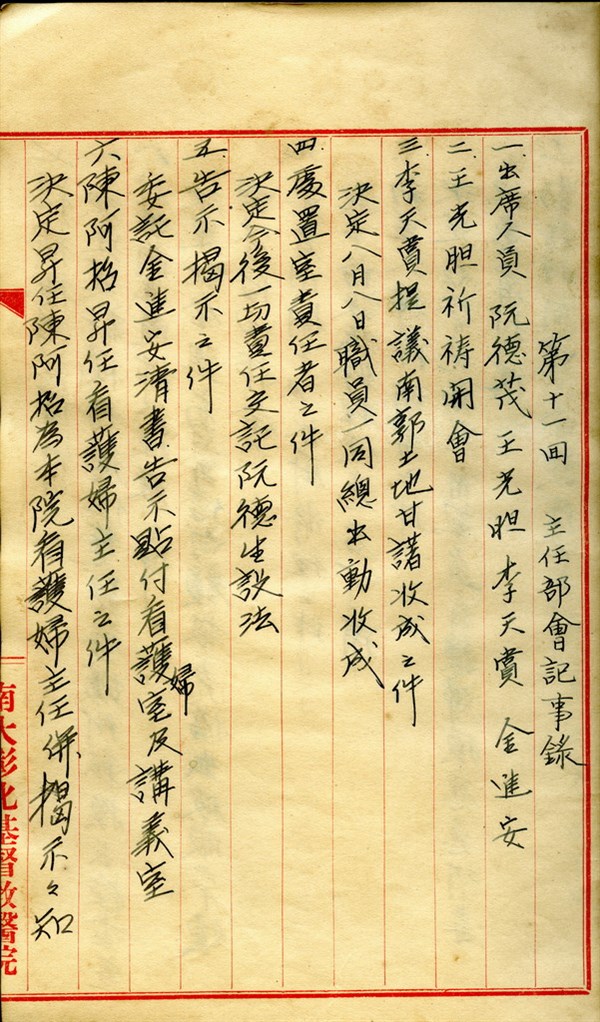 第十一回 主任部會記事錄
一.出席人員 阮德茂 王光胆 李天賞 金進安
二.王光胆祈祷開會
三.李天賞提議南郭土地甘諸收成之件
決定八月八日職員一同總出動收成
四.處置室責任者之件
決定今後一切責任交託阮德生設法
五.告示揭示之件
委託金進安清書告示貼付看護婦室及講義室
六.陳阿招昇任看護婦主任之件
決定昇任陳阿招為本院看護婦主任併揭示々知
南大彰化基督教醫院